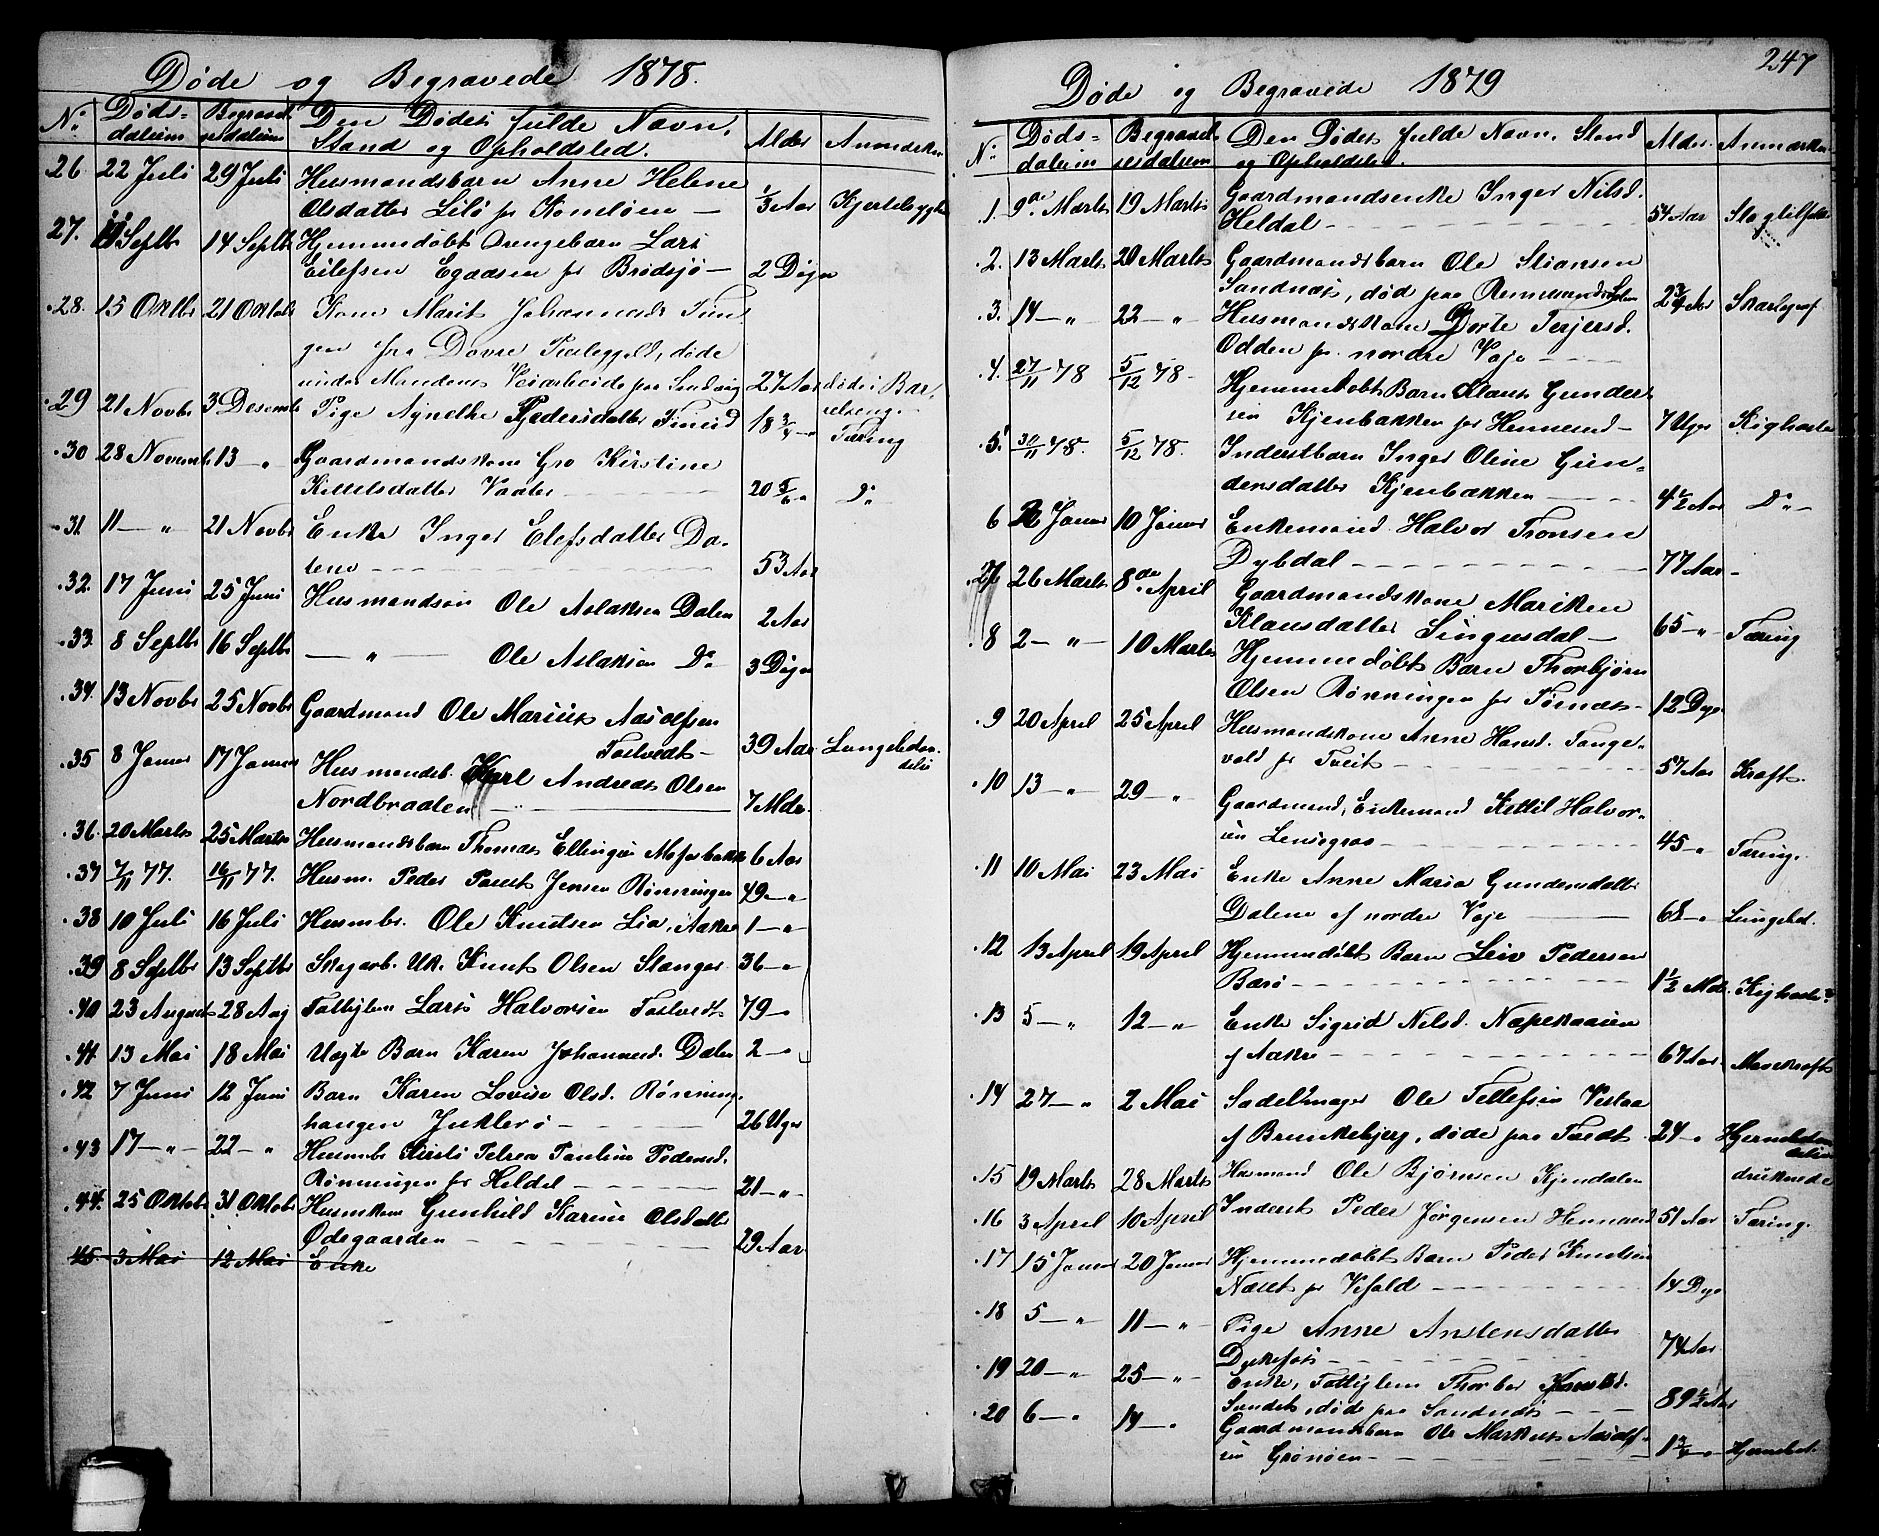 Døde og Begravede 1878.
No Døds- Begravel- Den Dødes fulde Navn, Alder Anmærkn
datum sesdatum Stand og Opholdsted.
26 22 Juli 29 Juli Husmandsbarn Anne Helene
Olsdatter Lilø pr 1/3 Aar Kjertelsyge
27. 11 Septbr 14 Septbr Hjemmedøbt Drengebarn Lars
Eilefsen pr Brødsjø — 2 Døgn
28. 15 Oktbr 21 Oktob Kone Marit Johannesd.
fra Dovre Præstegjeld, døde
under Mandens Veiarbeide paa 27 Aar døde i Bar-
29 21 Novbr 3 Desemb Pige Agnethe Pedersdatter 18 3/4 — selseng.
Tæring
30 28 Novemb. 13 — „ Gaardmandskone Gro Kirstine
Kittelsdatter Vaater 20 5/6 „ Do
31. 11 — „ 21 Novbr Enke Inger Elefsdatter Da-
lene 53 Aar
32. 17 Juni 25 Juni Husmandsøn Ole Aslaksen Dalen 2 Aar
33. 8 Septbr 16 Septbr — „ — Ole Aslaksen Do 3 Døgn
34. 13 Novbr 25 Novbr Gaardmand Ole Marius Aasolfsen
Tostvedt — 39 Aar Lungebetæn-
delse
35 8 Januar 17 Januar Husmandsb. Karl Andreas Olsen
Nordbraaten 7 Mdr.
36. 20 Marts 25 Marts Husmandsbarn Thomas Ellingsen Moserbakk 6 Aar
37 7/11 77. 16/11 77. Husm. Peder Jensen Rønningen 49 — „
38 10 Juli 16 Juli Husmbr. Ole Knutsen Lia, Aakre 1 — „
39 8 Septbr 13 Septbr Skogarb. Uk. Knut Olsen Stanger 36 — „
40 23 August 28 Aug Fattiglem Lars Halvorsen Tostvedt 79 — „
41. 13 Mai 18 Mai Uægte Barn Karen Johannesd. Dalen 2 — „
42 7 Juni 12 Juni Barn Karen Lovise Olsd. Rønning-
haugen 26 Uger
43 17 — „ 22 — „ Husmbr. Pauline Pedersd.
Rønningen pr Heldal 21 — „
44. 25 Oktobr 31 Oktobr Husmkone Gunhild Karine Olsdatter
Odegaarden 29 Aar
45. 3 Mai 12 Mai Enke
247
Døde og Begravede 1879
No Døds- Begravel- Den Dødes fulde Navn, Stand Alder Anmærkn
datum sesdatum og Opholdsted.
1. 9de Marts 19 Marts Gaardmandsenke Inger Nilsd.
Heldal 54 Aar Slagtilfælde
2. 13 Marts 20 Marts Gaardmandsbarn Ole Stiansen
Sandnæs, død paa 2 3/4 Aar Skarlagsf
3. 14 — „ 22 — „ Husmandskone Dorte Terjersd.
Odden pr. nordre Vøje
4. 27/11 78 5/12 78 Hjemmedøbt Barn Klaus Gunder-
sen Kjenbakken pr Henneseid 7 Uger Kighoste
5. 30/11 78. 5/12 78. Inderstbarn Inger Oline Gun-
dersdatter Kjenbakken 4 1/2 Aar Do
6 2 Januar 10 Januar Enkemand Halvor Tronsen
Dybdal 77 Aar
7. 26 Marts 8de April Gaardmandskone Mariken
Klausdatter Singusdal — 65 — „ Tæring
8 2 — „ 10 Marts Hjemmedøbt Barn Thorbjørn
Olsen Rønningen pr Tørnæs — 12 Døgn
9 20 April 25 April Husmandskone Anne Hansd. Tange-
vald pr Tveit 57 Aar Kræft.
10 13 — „ 29 — „ Gaardmand, Enkemand Kettil Halvor-
sen Lensegrav 45 — „ Tæring.
11 10 Mai 23 Mai Enke Anne Maria Gundersdatter
Dalene af nordre Vøje 68 — „ Lungebet.
12 13 April 19 April Hjemmedøbt Barn Leiv Pedersen
Barø 1 1/2 Mdr. Kighoste
13 5 — „ 12 — „ Enke Sigrid Nilsd. Næpekaasen
af Aakre 67 Aar Mavekræft
14 27 — „ 2 Mai Sadelmager Ole Tellefsen Vestaa
af Brunkebjerg, døde paa Tvedt 24 — „ Hjernebetæn-
delse
15 19 Marts 28 Marts Husmand Ole Bjørnsen Kjendalen druknede
16 3 April 10 April Inderst Peder Jørgensen Henneseid 51 Aar Tæring.
17 15 Januar 20 Januar Hjemmedøbt Barn Peder Knutsen
Næset pr Vefald 14 Døgn
18 5 — „ 11 — „ Pige Anne Anstensdatter
Dykefos 74 Aar
19 20 — „ 25 — „ Enke, Fattiglem Thorber
Sundet døde paa Sandnæs 89 1/2 Aar
20 6 — „ 14 — „ Gaardmandsbarn Ole Markus Aasolf-
sen Grønøen 1 3/4 — „ Hjernebet.